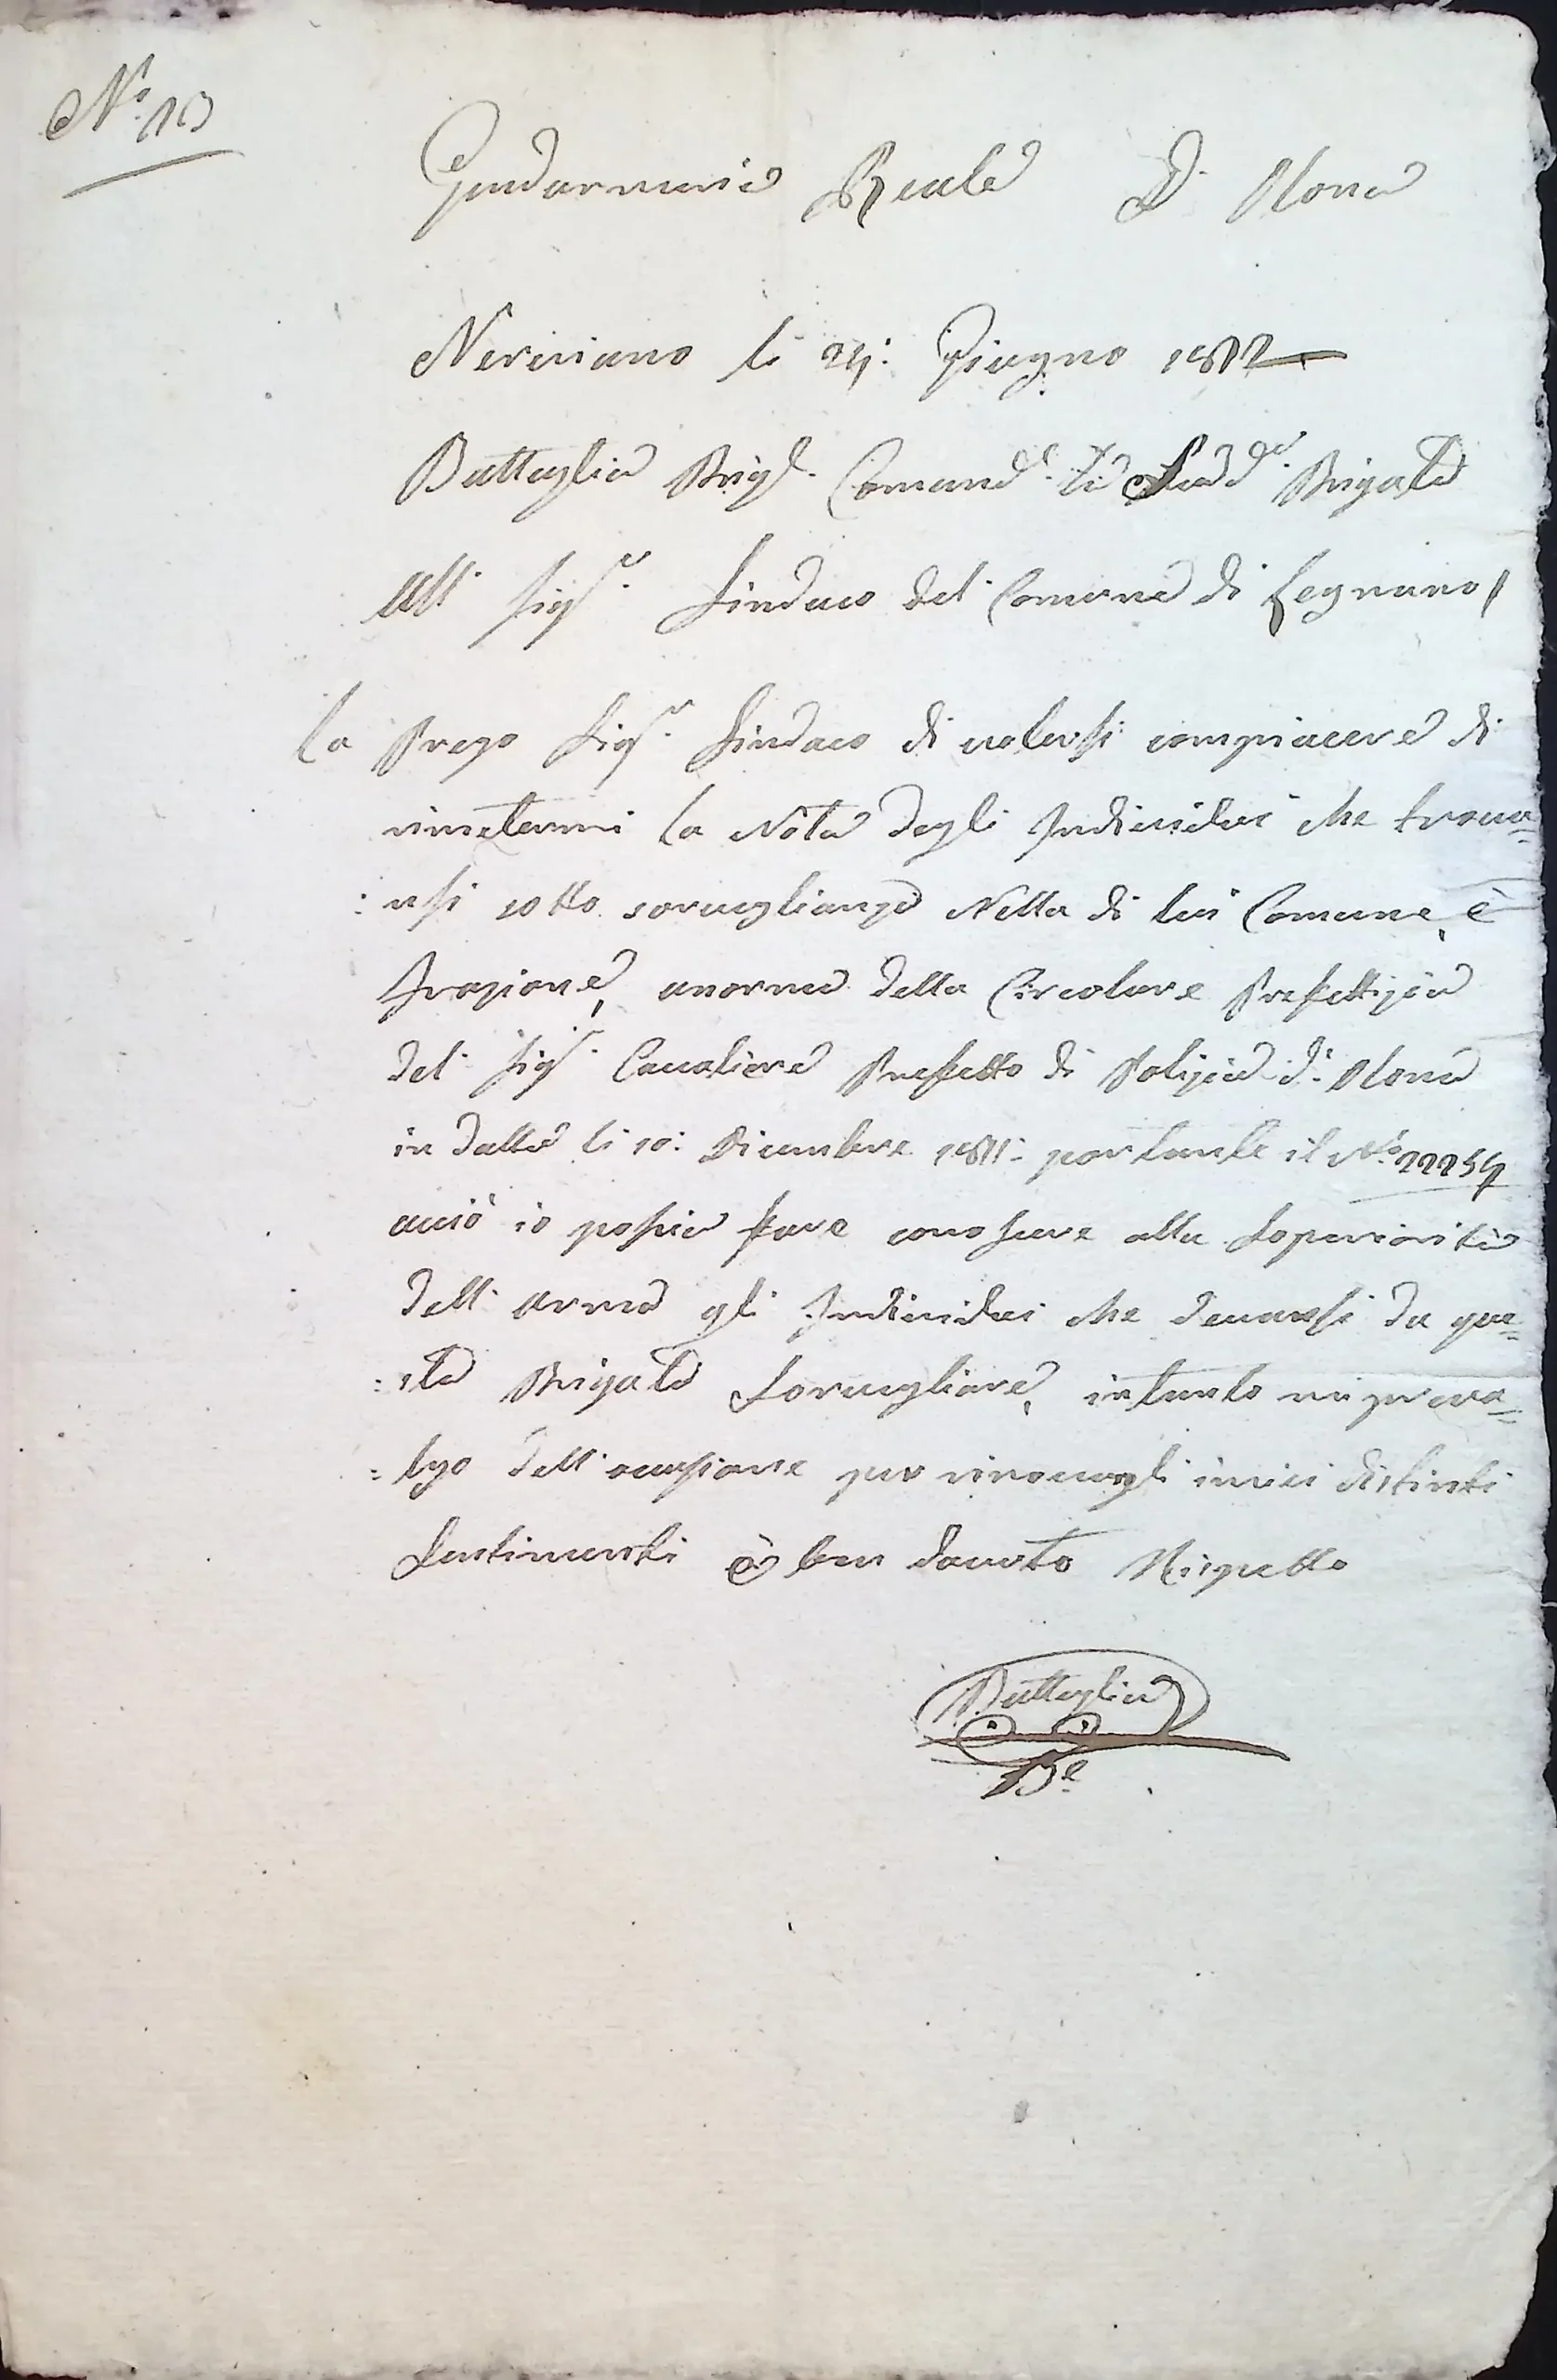 N.o 13
Gendarmeria Reale D' Olona
Nerviano li 24: Giugno 1812
Battaglia Brigd. Comand.e la Sud.a Brigata
All Sig.r Sindaco del Comune di Legnano
La Prego Sig.r Sindaco di volersi compiacere di
rimetermi la Nota degli Individui che trova=
:nsi sotto sorveglianza Nella di lui Comune, è
Frazione, anorma della Circolare Prefettizia
del Sig.r Cavaliere Prefetto di Polizia d'Olona
in datta li 10: Dicembre 1811: portante il N.o 22254
acciò io possia fare conoscere alla Soperiorità
dell'arma gli Individui che devonsi da que=
:sta Brigata Sorvegliare, intanto mi preva=
:lgo dell'ocasione per rinovargli i miei distinti
Sentimenti è ben dovuto Rispetto
Battaglia
B.e